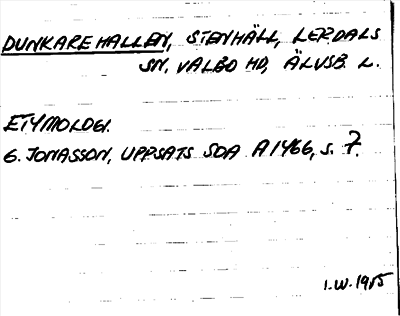 DUNKAREHALLEN, STENHÄLL, LERDALS
SN. VALBO HD, ÄLVSB. L.
ETYMOLOGI.
G. JONASSON, UPPSATS SOA A1466, S. 7.
I.W. 1985